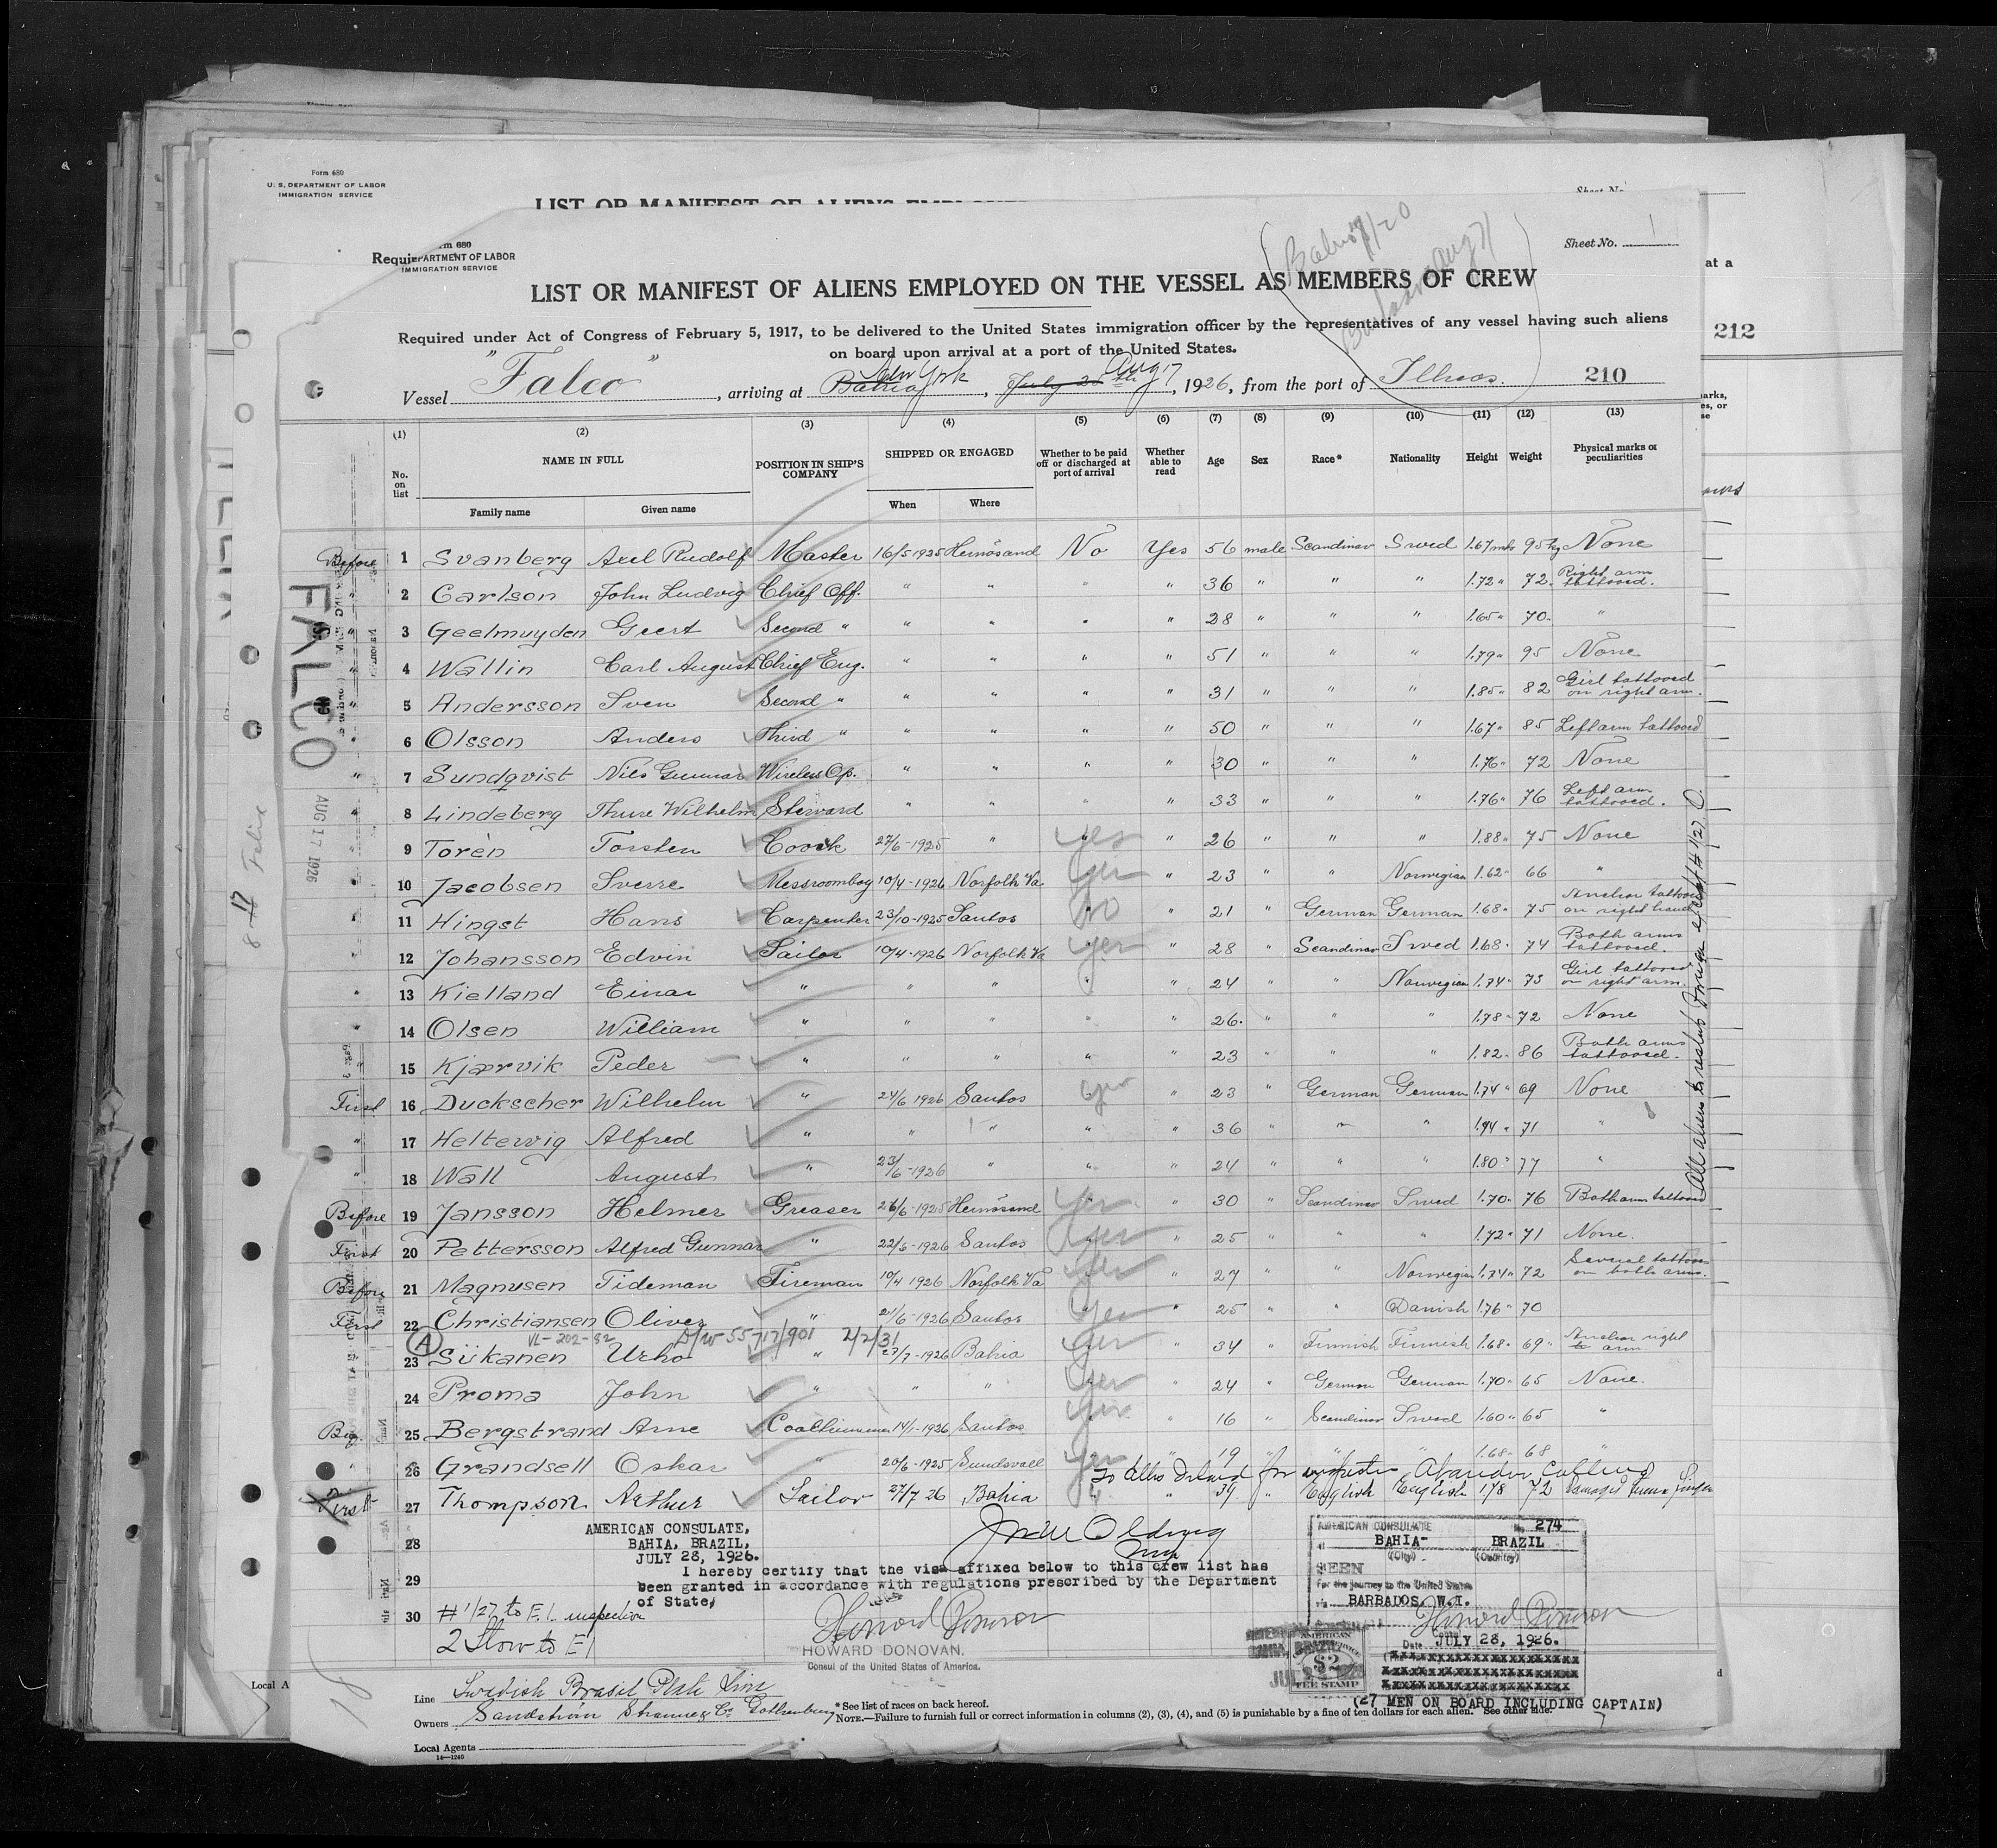 Form 680
U. S. DEPARTMENT OF LABOR
IMMIGRATION SERVICE
Sheet No.
LIST OR MANIFEST OF ALIENS
m 680
Requir
PARTMENT OF LABOR
IMMIGRATION SERVICE
Sheet No. 1
at a
LIST OR MANIFEST OF ALIENS EMPLOYED ON THE VESSEL AS MEMBERS OF CREW
Required under Act of Congress of February 5, 1917, to be delivered to the United States immigration officer by the representatives of any vessel having such aliens
on board upon arrival at a port of the United States.
212
Vessel "Falco", arriving at Bahia New York, July 28th Aug 17, 1926, from the port of Ilheos. 210
(1) (2) (3) (4) (5) (6) (7) (8) (9) (10) (11) (12) (13)
No. on list NAME IN FULL POSITION IN SHIP'S COMPANY SHIPPED OR ENGAGED Whether to be paid off or discharged at port of arrival Whether able to read Age Sex Race* Nationality Height Weight Physical marks or peculiarities
Family name Given name When Where
Before 1 Svanberg Axel Rudolf Master 16/5 1925 Hernösand No Yes 56 male Scandinav Swed 1.67 mtr 95 kg None
2 Carlson John Ludvig Chief Off. " " " " 36 " " " 1.72 " 72 Right arm tattooed.
3 Geelmuyden Geert Second " " " " " 28 " " " 1.65 " 70 "
4 Wallin Carl August Chief Eng. " " " " 51 " " " 1.79 " 95 None
5 Andersson Sven Second " " " " " 31 " " " 1.85 " 82 Girl tattooed on right arm.
6 Olsson Anders Third " " " " " 50 " " " 1.67 " 85 Left arm tattooed
" 7 Sundqvist Nils Gunnar Wireless Op. " " " " 30 " " " 1.76 " 72 None
" 8 Lindeberg Thure Wilhelm Steward " " " " 33 " " " 1.76 " 76 Left arm tattooed.
" 9 Torèn Torsten Coock 27/6-1925 " yes " 26 " " " 1.88 " 75 None
" 10 Jacobsen Sverre Messroomboy 10/4-1926 Norfolk Va yes " 23 " " Norwegian 1.62 " 66 "
" 11 Hingst Hans Carpenter 23/10-1925 Santos no " 21 " German German 1.68 " 75 Anchor tattoo on right hand
" 12 Johansson Edvin Sailor 10/4-1926 Norfolk Va yes " 28 " Scandinav Swed 1.68 " 74 Both arms tattooed.
" 13 Kielland Einar " " " " " 24 " " Norwegian 1.74 " 73 Girl tattooed on right arm.
" 14 Olsen William " " " " " 26 " " " 1.78 " 72 None
15 Kjærvik Peder " " " " " 23 " " " 1.82 " 86 Both arms tattooed.
First 16 Duckscher Wilhelm " 24/6 1926 Santos yes " 23 " German German 1.74 " 69 None
" 17 Heltewig Alfred " " " " " 36 " " " 1.74 " 71 "
" 18 Wall August " 23/6-1926 " " " 24 " " " 1.80 " 77 "
Before 19 Jansson Helmer Greaser 26/6-1925 Hernösand yes " 30 " Scandinav Swed 1.70 " 76 Both arm tattooed
First 20 Pettersson Alfred Gunnar " 22/6-1926 Santos yes " 25 " " " 1.72 " 71 None.
Before 21 Magnusen Tideman Fireman 10/4 1926 Norfolk Va yes " 27 " " Norwegian 1.74 " 72 Several tattoos on both arms.
First 22 Christiansen Oliver " 21/6-1926 Santos yes " 25 " " Danish 1.76 " 70
VL-202-52 D/W 55717/901 2/2/31
(A) 23 Siikanen Urho " 27/7-1926 Bahia yes " 34 " Finnish Finnish 1.68 " 69 " Anchor right arm
24 Proma John " " " yes " 24 " German German 1.70 " 65 None.
Beg. 25 Bergstrand Arne Coaltrimmer 14/1-1926 Santos yes " 16 " Scandinav Swed 1.60 " 65 "
" 26 Grandsell Oskar " 20/6-1925 Sundsvall yes " 19 " " " 1.68 " 68 "
To Ellis Island for inspection
First 27 Thompson Arthur Sailor 27/7 26 Bahia " " 39 " English English 178 72
28
29
30
AMERICAN CONSULATE,
BAHIA, BRAZIL,
JULY 28, 1926.
I hereby certify that the visa affixed below to this crew list has
been granted in accordance with regulations prescribed by the Department
of State,
#1/27 to E.I. inspection
Howard Donovan
HOWARD DONOVAN.
Consul of the United States of America.
AMERICAN CONSULATE No. 274
at BAHIA BRAZIL
(City) (Country)
SEEN
For the journey to the United States
via BARBADOS, W.I.
Howard Donovan
Date JULY 28, 1926.
AMERICAN
$2
FEE STAMP
(27 MEN ON BOARD INCLUDING CAPTAIN)
Line Swedish Brasil Plate Line
Owners Sandström Stranne & Co Gothenburg
Local Agents
14—1240
*See list of races on back hereof.
NOTE.—Failure to furnish full or correct information in columns (2), (3), (4), and (5) is punishable by a fine of ten dollars for each alien. See other side.
Local A
FALCO
AUG 17 1926